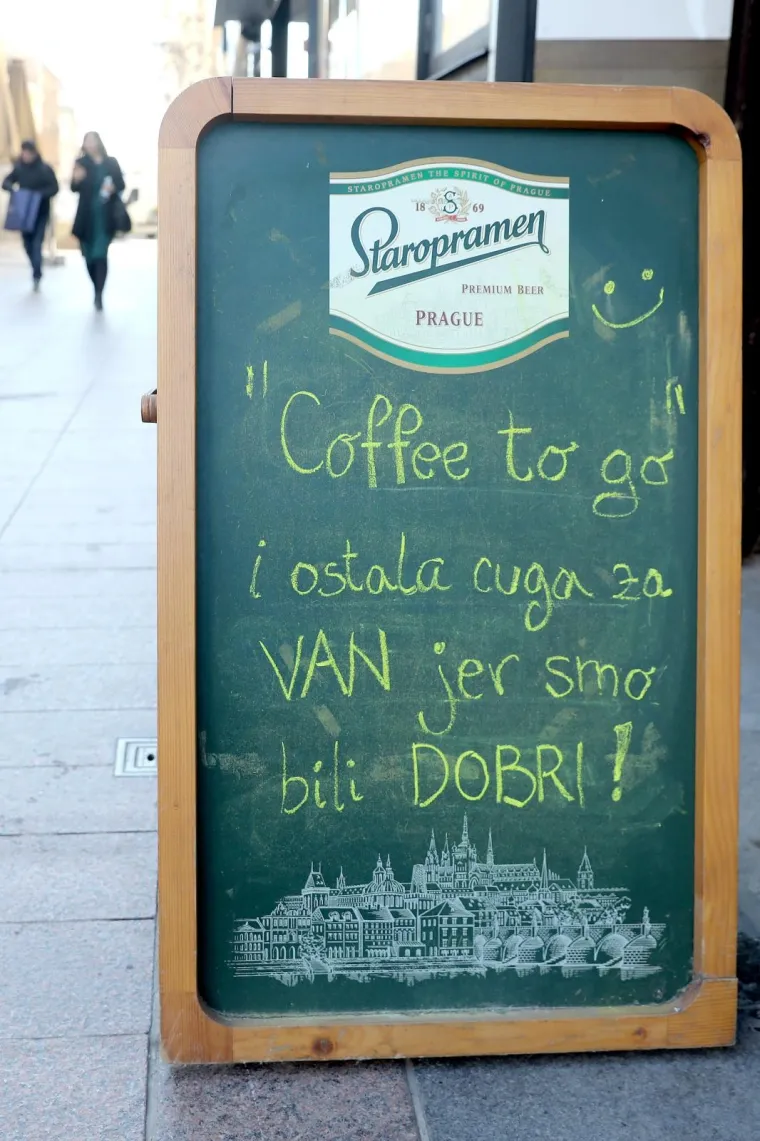 STAROPRAMEN THE SPIRIT OF PRAGUE
18 S 69
Staropramen
PREMIUM BEER
PRAGUE
"Coffee to go"
i ostala cuga za
VAN jer smo
bili DOBRI!